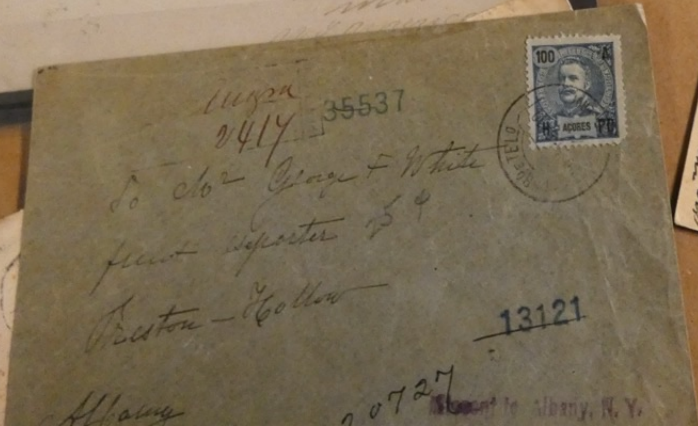 100 A
AÇORES
H PD
Angra
2417
35537
To Mr George F White
fruit exporter
Preston-Hollow
13121
Albany
20727
Missent to Albany, N. Y.